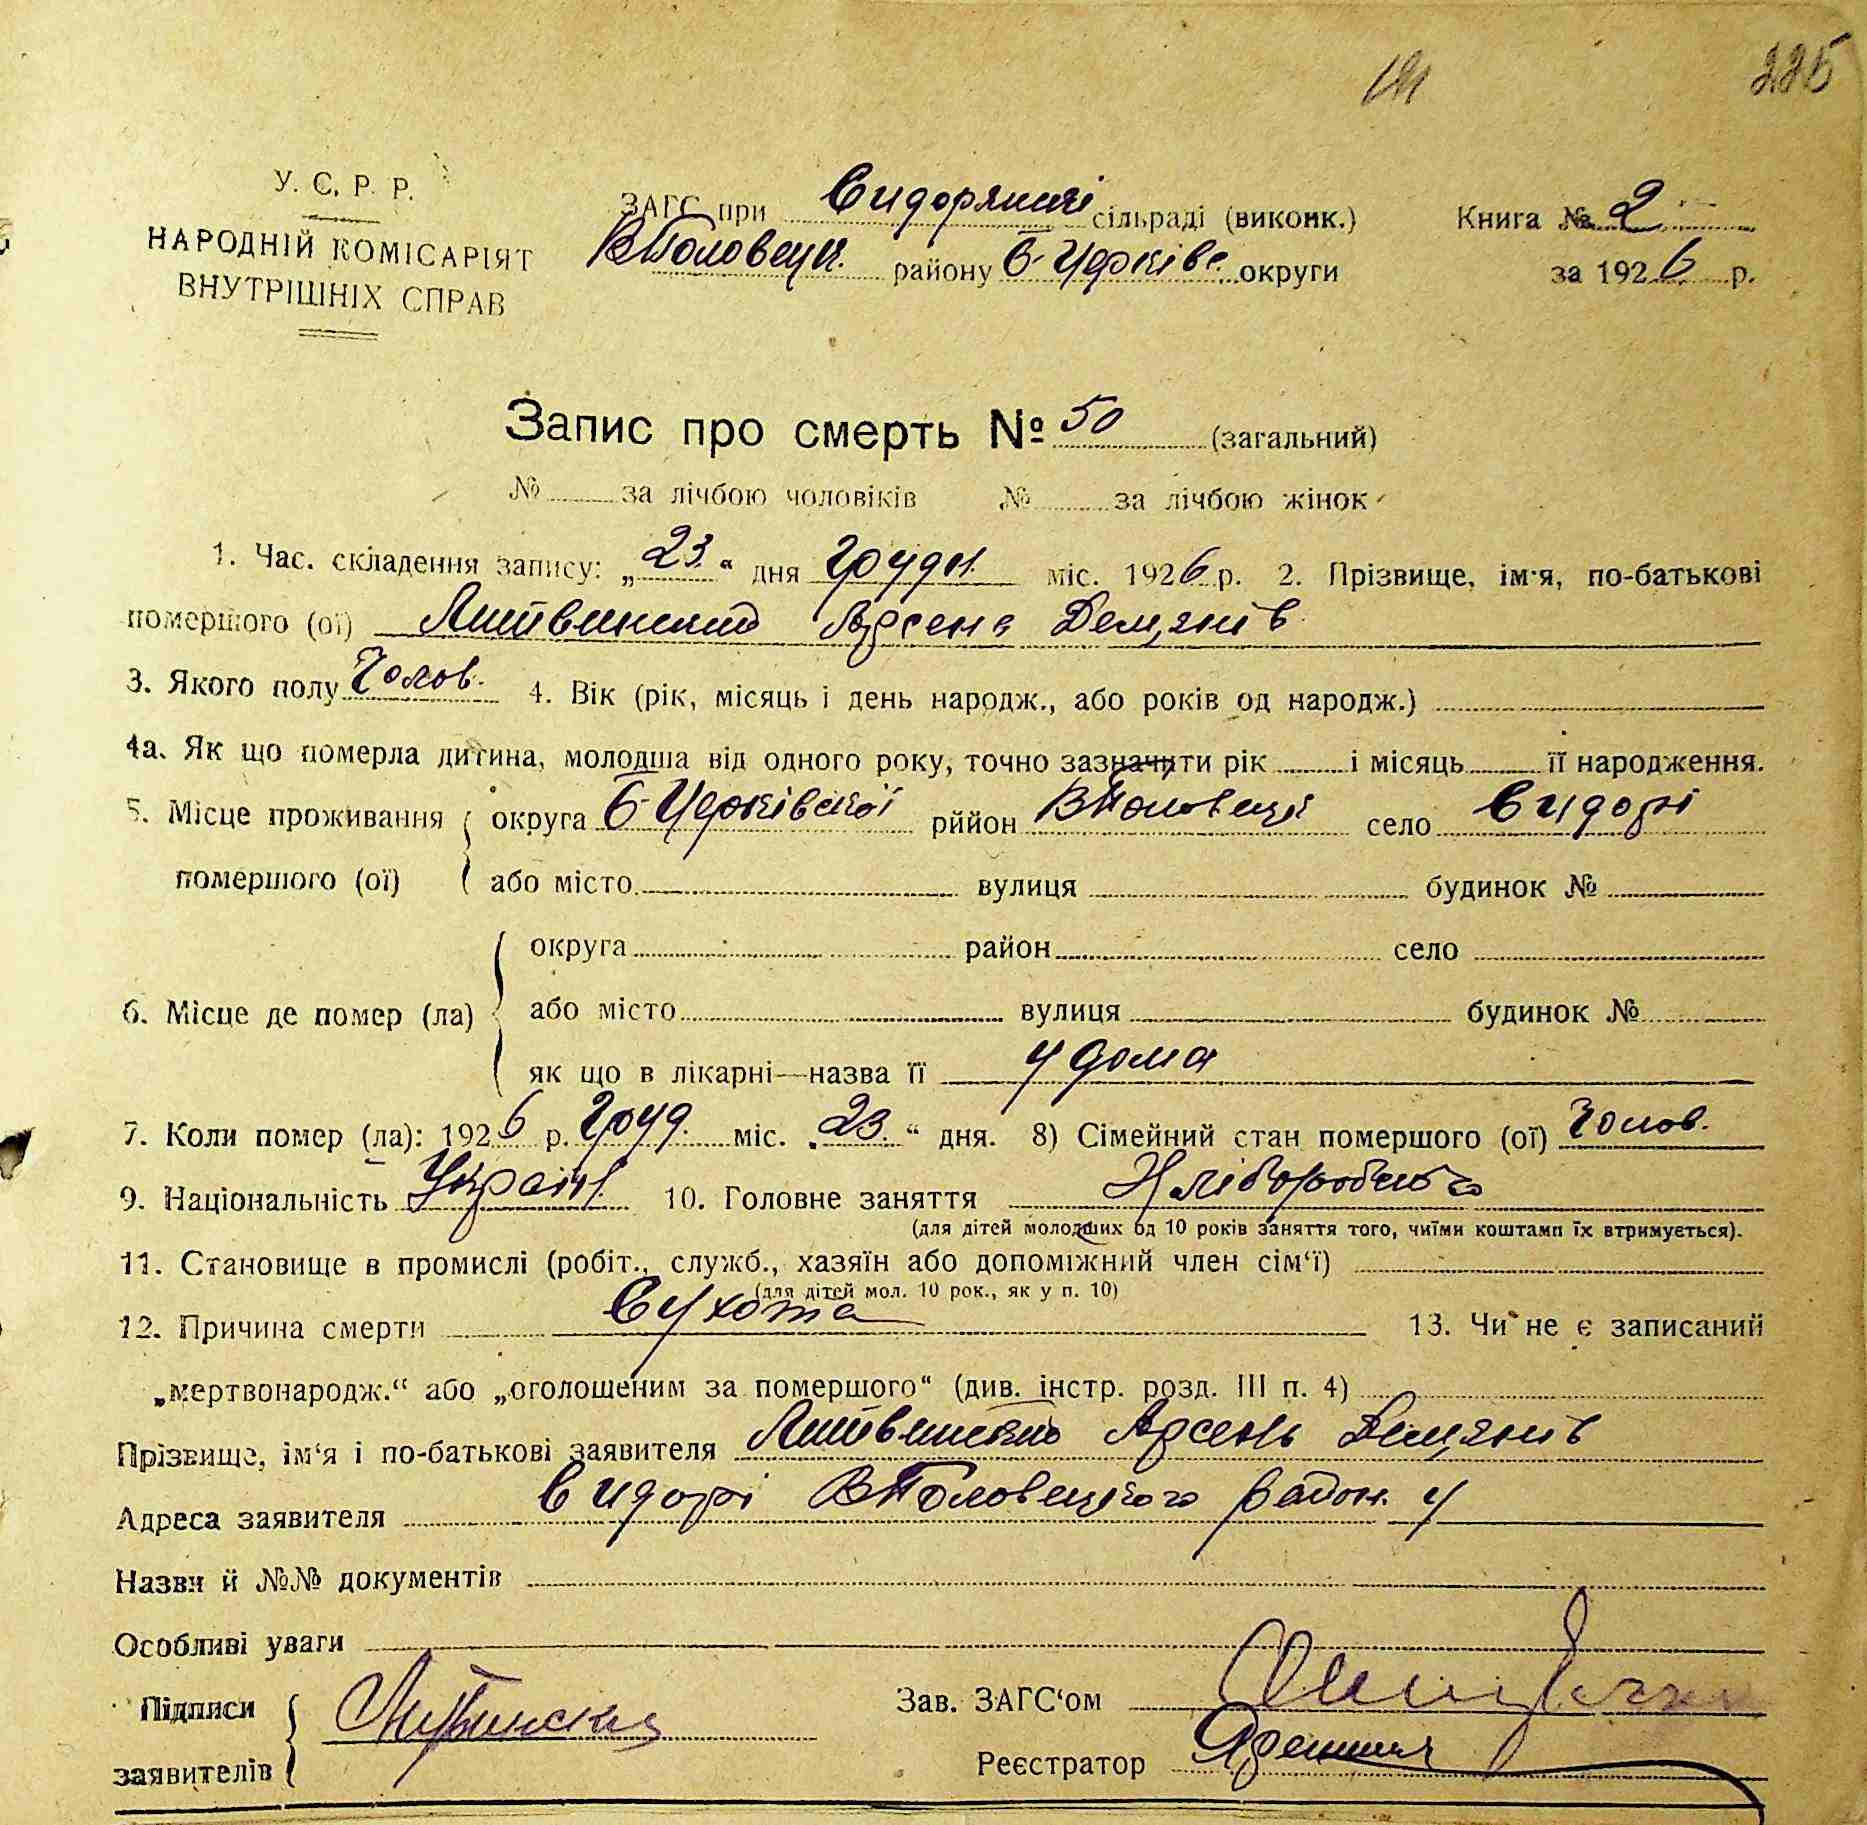 225
У. С. Р. Р.
НАРОДНІЙ КОМІСАРІЯТ
ВНУТРІШНІХ СПРАВ
ЗАГС при Сидорянскі сільраді (виконк.)
ВПоловецк. району Б-Церківс. округи
Книга № 2
за 1926 р.
Запис про смерть № 50 (загальний)
№ за лічбою чоловіків № за лічбою жінок
1. Час. складення запису: „23.“ дня Грудн. міс. 1926 р. 2. Прізвище, ім'я, по-батькові
помершого (ої) Литвинский Арсена Демянів
3. Якого полу Чолов. 4. Вік (рік, місяць і день народж., або років од народж.)
4а. Як що померла дитина, молодша від одного року, точно зазначити рік і місяць її народження.
5. Місце проживання округа Б-Церківскої рййон ВПоловеці село Сидорі
помершого (ої) або місто вулиця будинок №
округа район село
6. Місце де помер (ла) або місто вулиця будинок №
як що в лікарні—назва її у дома
7. Коли помер (ла): 1926 р. Груд. міс. „23.“ дня. 8) Сімейний стан помершого (ої) Чолов.
9. Національність Україн. 10. Головне заняття Хліборобство
(для дітей молодших од 10 років заняття того, чиїми коштами їх втримується).
11. Становище в промислі (робіт., служб., хазяїн або допоміжний член сім'ї)
(для дітей мол. 10 рок., як у п. 10)
12. Причина смерти Сухота 13. Чи не є записаний
„мертвонародж.“ або „оголошеним за помершого“ (див. інстр. розд. III п. 4)
Прізвище, ім'я і по-батькові заявителя Литвинский Арсень Демянів
Адреса заявителя Сидорі ВПоловецкого район. у
Назви й №№ документів
Особливі уваги
Підписи
заявителів Литвинский
Зав. ЗАГС'ом
Реєстратор